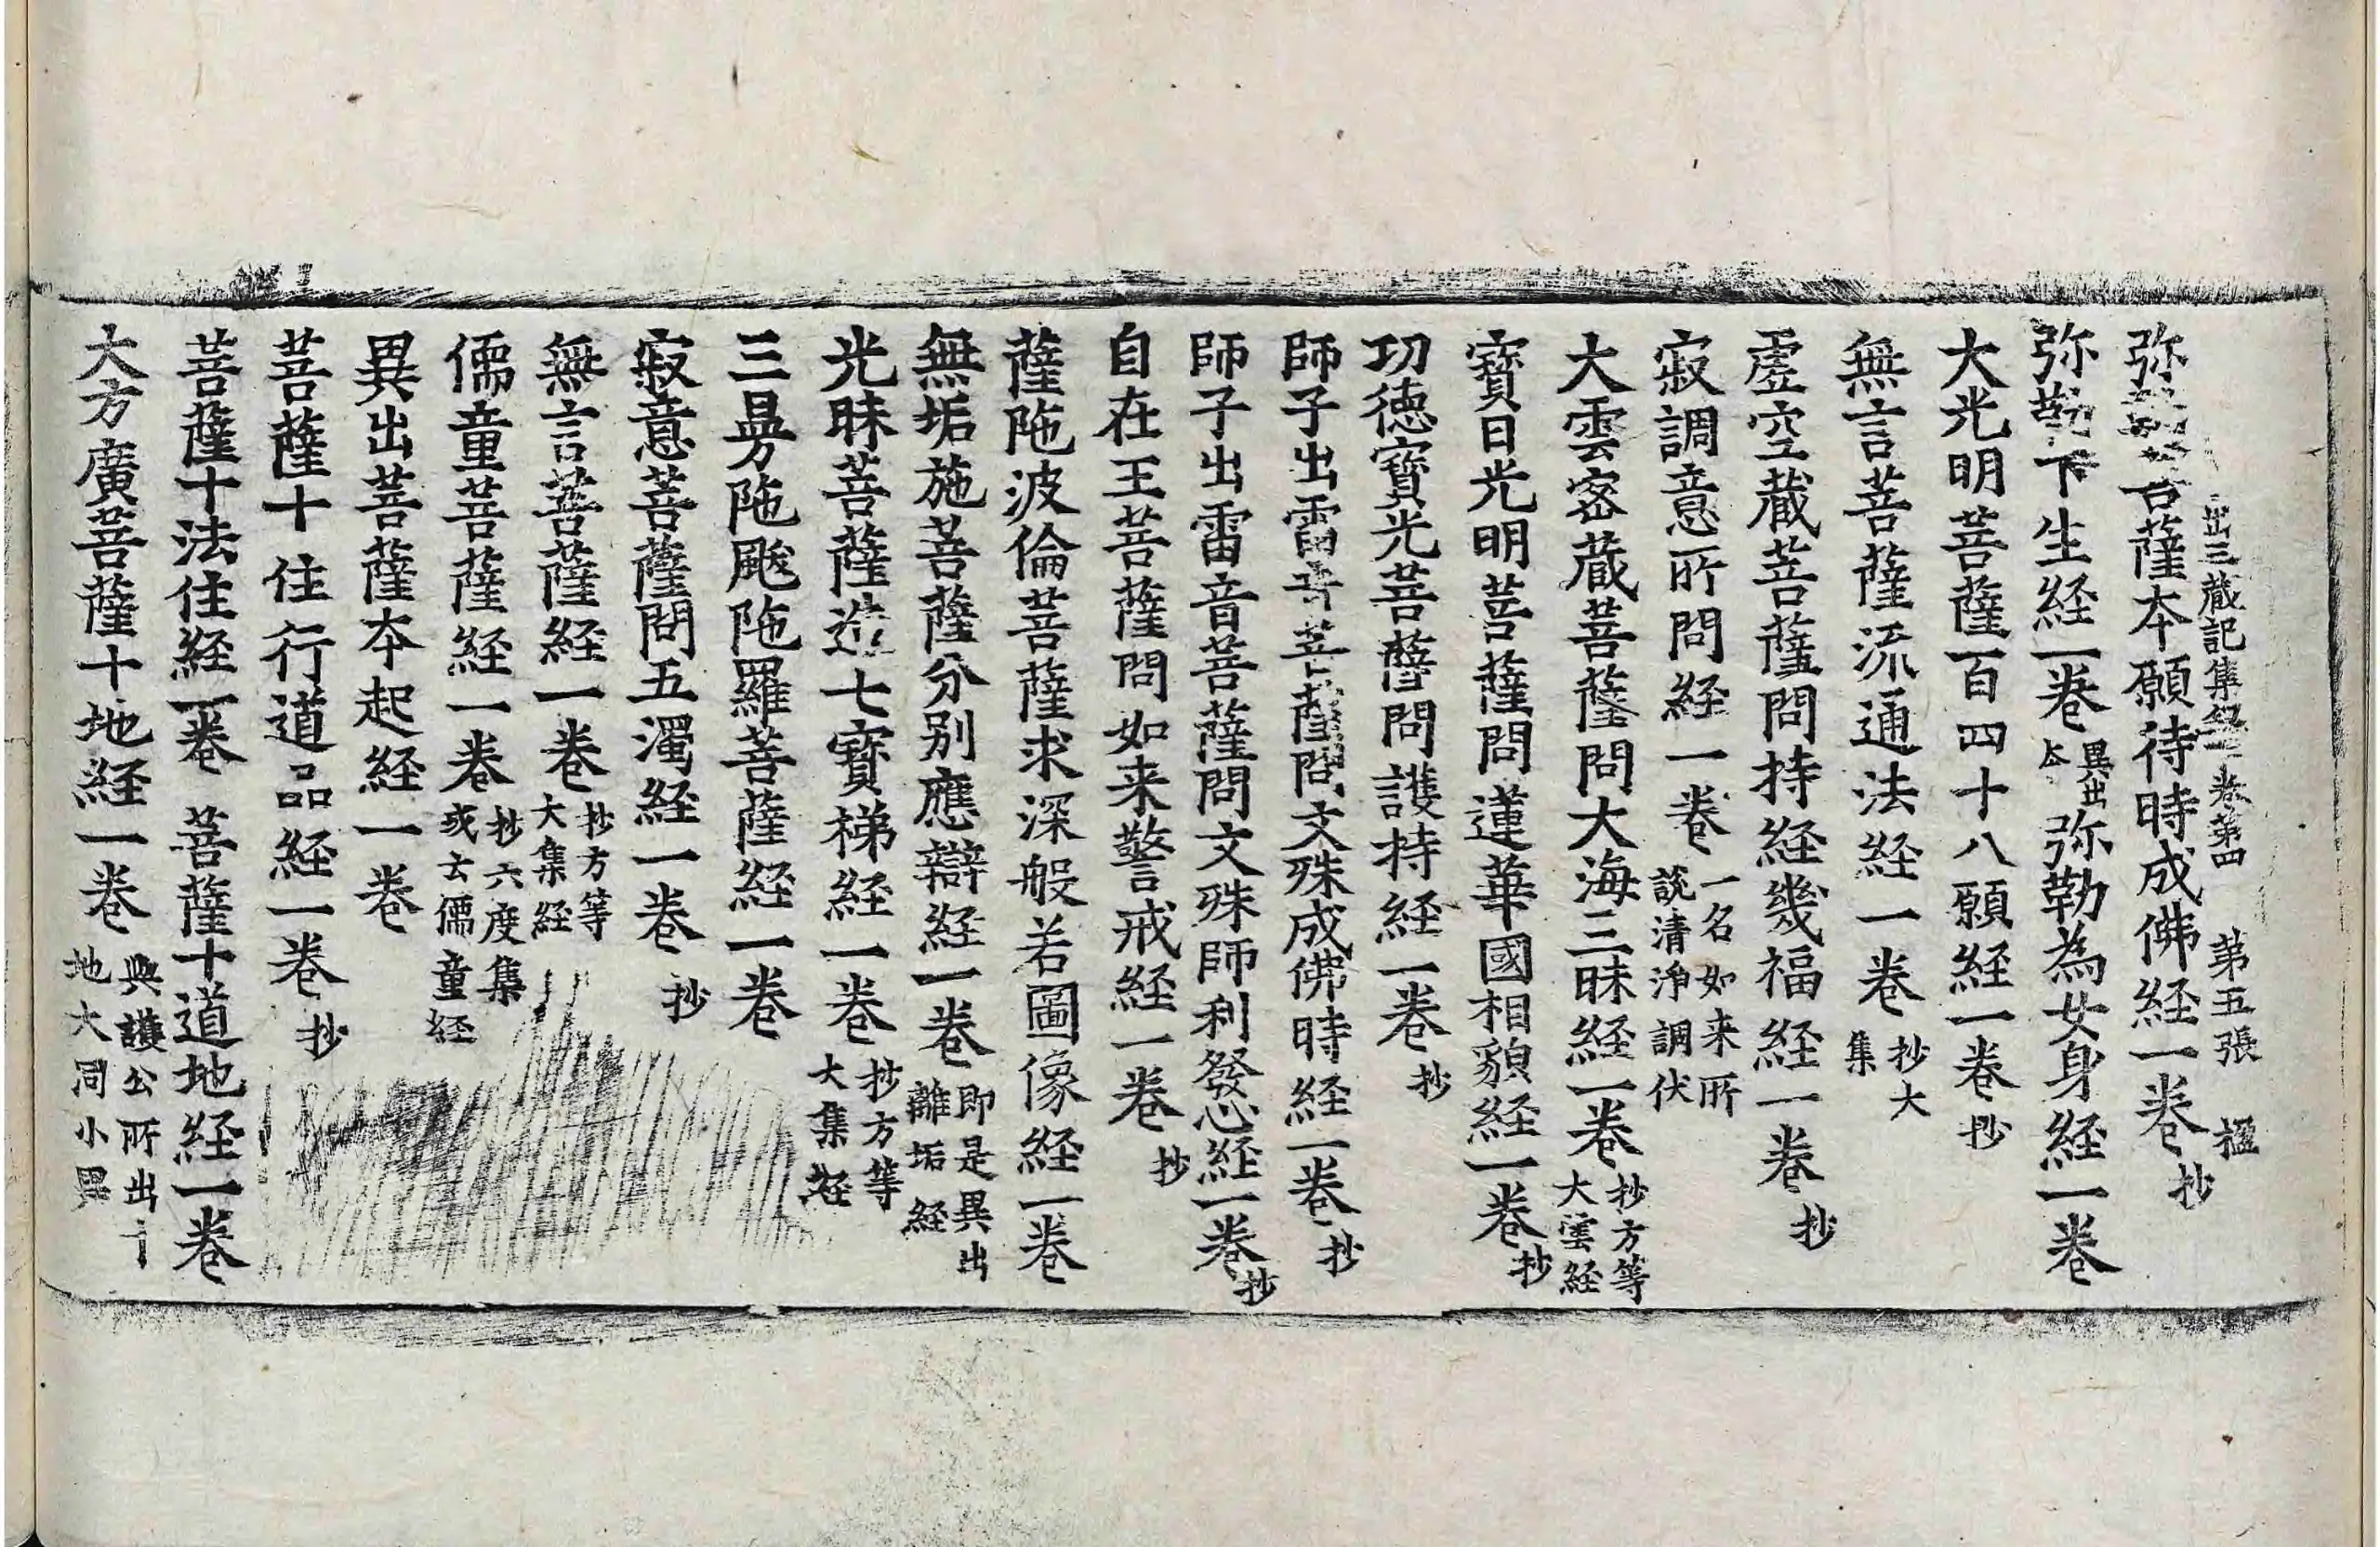 出三蔵記集録卷第四 第五張 楹
弥菩薩本願待時成佛経一卷 抄
弥勒下生経一卷 異出本 弥勒為女身経一卷
大光明菩薩百四十八願経一卷 抄
無言菩薩流通法経一卷 抄大集
虗空蔵菩薩問持経幾福経一卷 抄
寂調意所問経一卷 一名如来所說清淨調伏
大雲密蔵菩薩問大海三昧経一卷 抄方等大雲経
寶日光明菩薩問蓮華國相貌経一卷 抄
功徳寶光菩薩問護持経一卷 抄
師子出雷音菩薩問文殊成佛時経一卷 抄
師子出雷音菩薩問文殊師利發心経一卷 抄
自在王菩薩問如来警戒経一卷 抄
薩陁波倫菩薩求深般若圖像経一卷
無垢施菩薩分別應辯経一卷 即是異出離垢経
光昧菩薩造七寶梯経一卷 抄方等大集経
三曼陁颰陁羅菩薩経一卷
寂意菩薩問五濁経一卷 抄
無言菩薩経一卷 抄方等大集経
儒童菩薩経一卷 抄六度集或云儒童経
異出菩薩本起経一卷
菩薩十住行道品経一卷 抄
菩薩十法住経一卷 菩薩十道地経一卷
大方廣菩薩十地経一卷 與護公所出十地大同小異